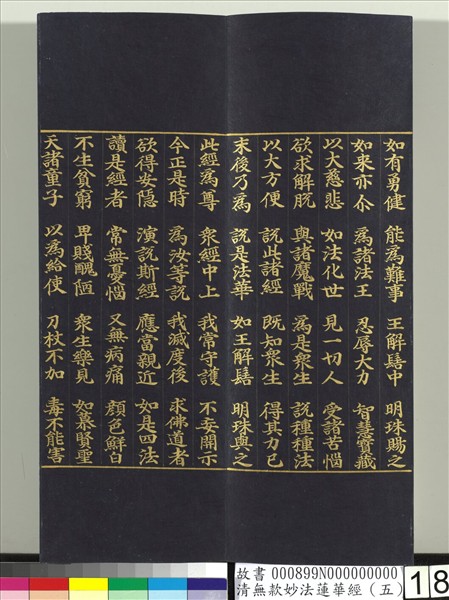 如有勇健 能為難事 王解髻中 明珠賜之
如來亦尒 為諸法王 忍辱大力 智慧寶藏
以大慈悲 如法化世 見一切人 受諸苦惱
欲求解脫 與諸魔戰 為是衆生 說種種法
以大方便 說此諸經 既知衆生 得其力已
末後乃為 說是法華 如王解髻 明珠與之
此經為尊 衆經中上 我常守護 不妄開示
今正是時 為汝等說 我滅度後 求佛道者
欲得安隐 演說斯經 應當親近 如是四法
讀是經者 常無憂惱 又無病痛 顏色鮮白
不生貧窮 卑賤醜陋 衆生樂見 如慕賢聖
天諸童子 以為給使 刀杖不加 毒不能害
故書 000899N000000000
清無款妙法蓮華經（五）
18